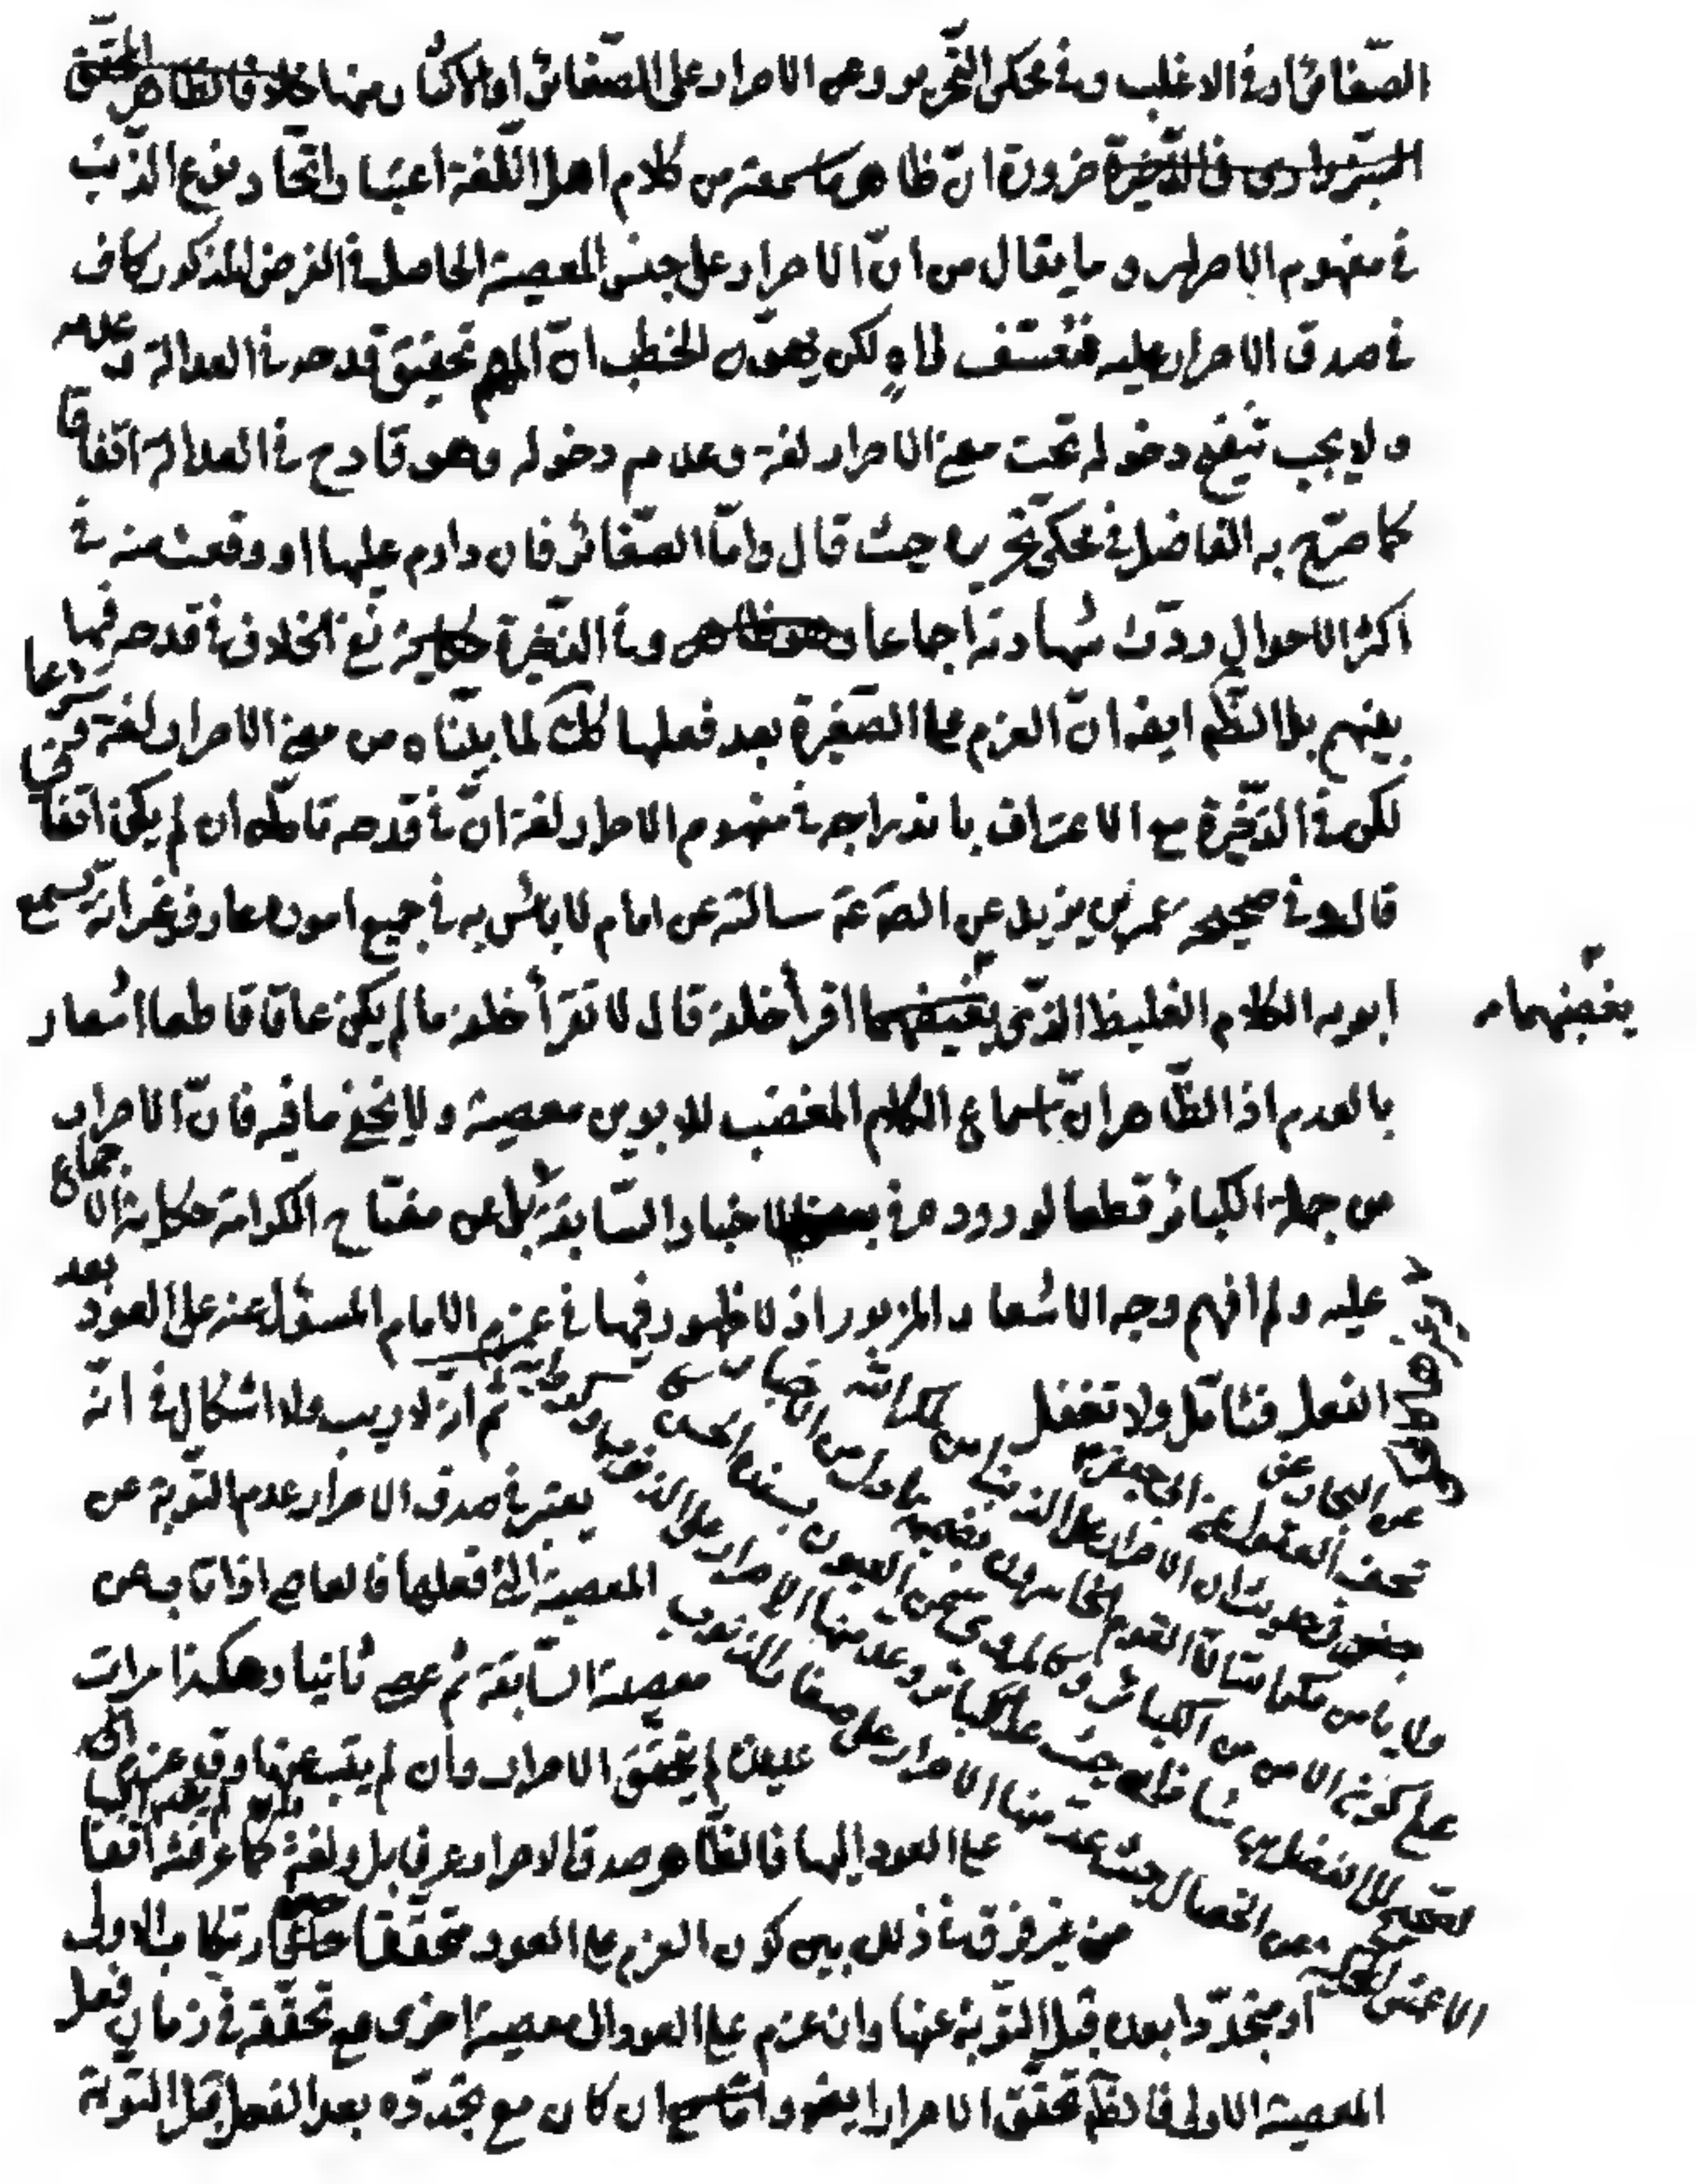 الصّغائر او في الاغلب وفي محكى التّحرير وعن الاصرار على الصّغائر او الاكثار منها خلافا لظاهر المحقّق
السّبزوارى فى الذّخيرة ضرورة انّ ظاهر ما سمعته من كلام اهل اللّغة اعتبار اتّحاد نوع الذّنب
في مفهوم الاصرار و ما يقال من انّ الاصرار على جنس المعصية الحاصل في الفرض المذكور كاف
في صدق الاصرار عليه فتعسّف لكن يهوّن الخطب انّ المهم تحقيق قدحه في العدالة وعدمه
ولا يجب تنقيح دخوله تحت معنى الاصرار لغة وعدم دخوله وهو قادح في العدالة اتّفاقا
كما صرّح به الفاضل في محكى تحريره حيث قال وامّا الصّغائر فان داوم عليها او وقعت منه في
اكثر الاحوال ردّت شهادته اجماعا وهو ظاهر وفي الذّخيرة نفى الخلاف في قدحه فيما
بينهم بل الظّم ايضا انّ العزم على الصّغيرة بعد فعلها كك لما بيّنّاه من معنى الاصرار لغة وعرفا
لكن في الذّخيرة مع الاعتراف باندراجه في مفهوم الاصرار لغة انّ في قدحه تامّلا ان لم يكن اتّفاقى
قال وفي صحيحة عمر بن يزيد عن الصّ ع سالته عن امام لا باس به في جميع اموره عارف غير انّه يسمع
ابويه الكلام الغليظ الذّى يغيضهما اقرأ خلفه قال لا تقرأ خلفه ما لم يكن عاقا قاطعا اشعار
يغضبهما
بالعدم اذ الظّاهر انّ اسماع الكلام المغضب للابوين معصية ولا يخفى ما فيه فانّ الاصرار
من جملة الكبائر قطعا لوروده في الاخبار السّابقة بل عن مفتاح الكرامة حكاية الاجماع
عليه ولم افهم وجه الاشعار المزبور اذ لا ظهور فيها في عزم الامام المسئول عنه على العود بعد
الفعل فتامّل ولا تغفل
ثم انّه لا ريب ولا اشكال في انّه
يعتبر في صدق الاصرار عدم التّوبة عن
المعصية الّتى فعلها فالعاصى اذا تاب عن
معصية السّابقة ثم عصى ثانيا وهكذا مرات
عديدة لم يتحقّق الاصرار وان لم يتب عنها وقد عزم
على العود اليها فالظّاهر صدق الاصرار عرفا بل ولغة كما عرفت اتّفاقا
من غير فرق في ذلك بين كون العزم على العود متحقّقا حين ارتكاب الاولى
او متجدّدا بعده قبل التّوبة عنها وان عزم على العود الى معصية اخرى مع تحقّقه في زمان فعل
المعصية الاولى فالظّم تحقّق الاصرار ايضا وامّا ان كان مع تجدّده بعد الفعل قبل التّوبة
عن البحار عن
تحف العقول عن ابى جعفر ع
في حديث ان الاصرار على الذنب امن لمكر الله
ولا يامن مكر الله الّا القوم الخاسرون
على كونه الامن من الكبائر
الفضل بن شاذان حيث عدّ الكبائر وعدّ منها الاصرار على الذنوب
الاعمش عن الخصال حيث عدّ منها الاصرار على صغائر الذنوب